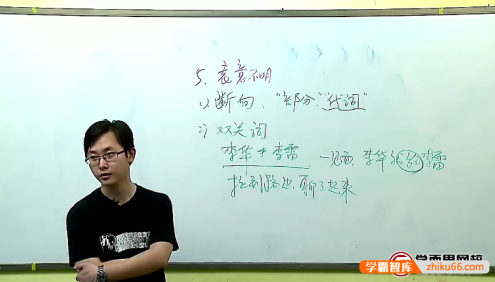 5. 表意不明
1) 断句、"部分""代词"
2) 双关词
李华+李雷 一见面,李华 李雷
拉到路边,聊了起来
学而思网校
学霸智库
zhiku66.com